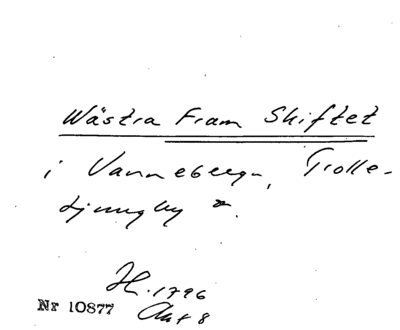 Wästra Fram Skiftet
i Vanneberga, Trolle-
ljungby
H. 1796
Nr 10877 Akt 8